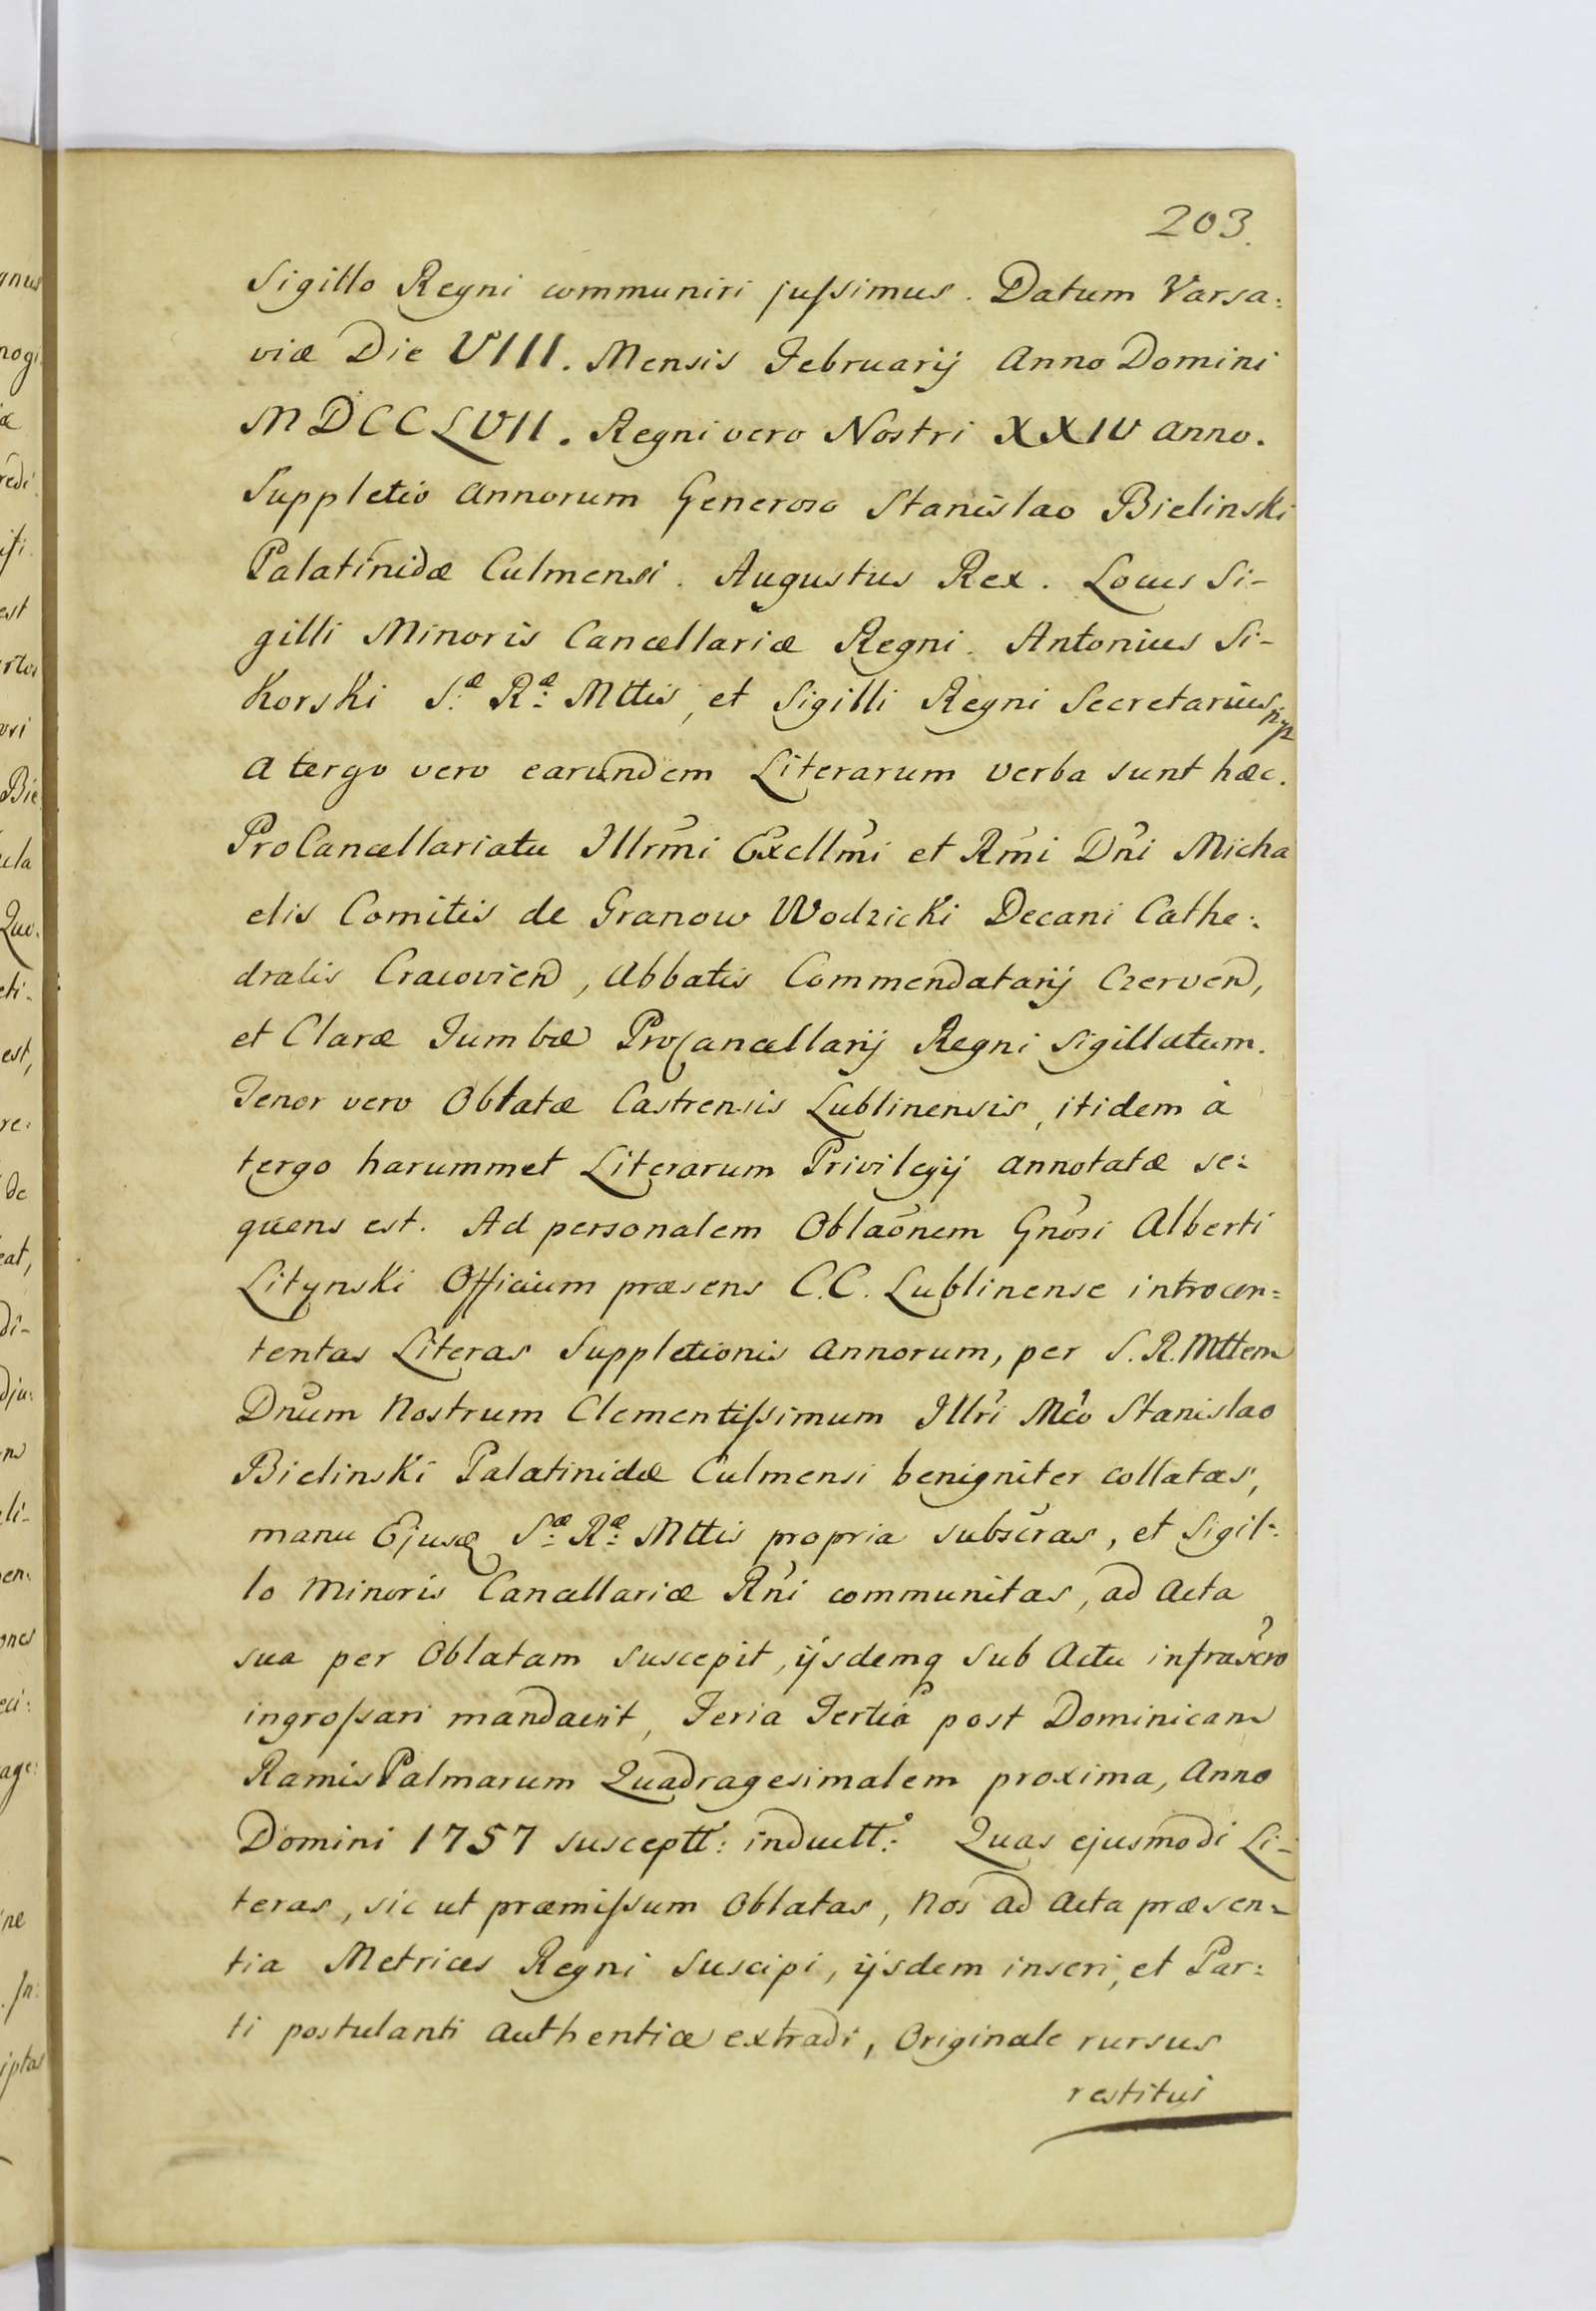 203.
Sigillo Regni communiri jussimus. Datum Varsa:
viæ Die VIII. Mensis Februarij Anno Domini
MDCCLVII. Regni vero Nostri XXIV anno.
Suppletio annorum Generoso Stanislao Bielinski
Palatinidæ Culmensi. Augustus Rex. Locus Si-
gilli Minoris Cancellariæ Regni. Antonius Si-
korski S.æ R.æ Mttis, et Sigilli Regni Secretarius
mp
a tergo vero earundem Literarum verba sunt hæc.
ProCancellariatu Illrm̃i Excllm̃i et Rm̃i Dñi Micha
elis Comitis de Granow Wodzicki Decani Cathe:
dralis Cracovien, Abbatis Commendatarij Czerven,
et Claræ Tumbæ ProCancellarij Regni Sigillatum.
Tenor vero Oblatæ Castrensis Lublinensis, itidem à
tergo harummet Literarum Privilegij annotatæ se:
quens est. Ad personalem Oblaõnem Gnõsi Alberti
Litynski Officium præsens C.C. Lublinense introcon=
tentas Literas Suppletionis annorum, per S.R.Mttem
Dnũm Nostrum Clementissimum Illri Mco Stanislao
Bielinski Palatinidæ Culmensi benigniter collatas,
manu Ejusq S.æ R.æ Mttis propria subscras, et Sigil:
lo Minoris Cancellariæ Rñi communitas, ad Acta
sua per Oblatam suscepit, ijsdemq sub Actu infrascro
ingrossari mandavit, Feria Tertia post Dominicam
Ramis Palmarum Quadragesimalem proxima, Anno
Domini 1757 susceptt: inductt: Quas ejusmodi Li-
teras, sic ut præmissum Oblatas, Nos ad Acta præsen=
tia Metrices Regni suscipi, ijsdem inseri, et Par:
ti postulanti authentice extradi, Originale rursus
restitui